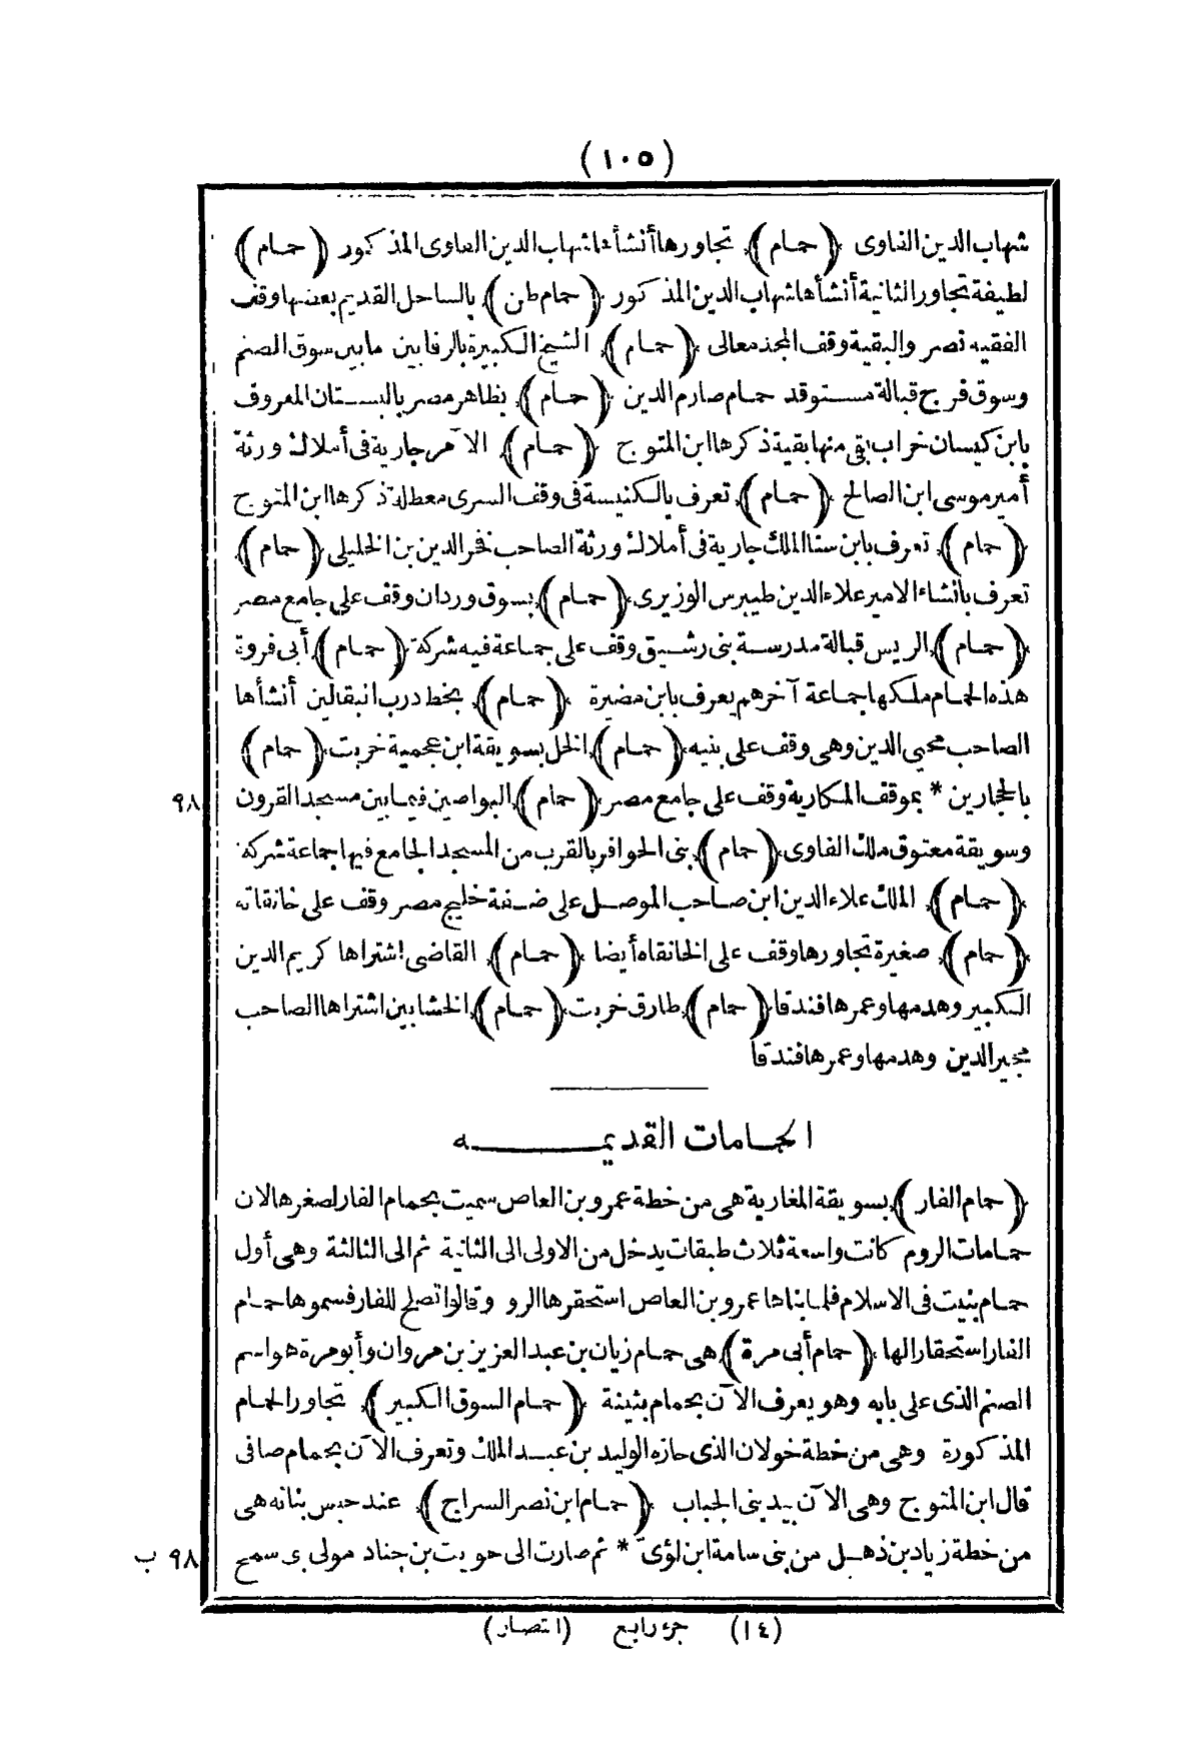 (١٠٥)
شهاب الدين الفاوى (حمام) تجاورها أنشأها شهاب الدين الفاوى المذكور (حمام)
لطيفة تجاور الثانية أنشأها شهاب الدين المذكور (حمام طن) بالساحل القديم بعضها وقف
الفقيه نصر والبقية وقف المجد معالى (حمام) الشيخ الكبيرة بالرفايين مابين سوق الصنم
وسوق فرج قبالة مستوقد حمام صارم الدين (حمام) بظاهر مصر بالبستان المعروف
بابن كيسان خراب بقى منها بقية ذكرها ابن المتوج (حمام) الآمر جارية فى أملاك ورثة
أمير موسى ابن الصالح (حمام) تعرف بالكنيسة فى وقف السرى معطلة ذكرها ابن المتوج
(حمام) تعرف بابن سنا الملك جارية فى أملاك ورثة الصاحب فخر الدين بن الخليلى (حمام)
تعرف بانشاء الامير علاء الدين طيبرس الوزيرى (حمام) بسوق وردان وقف على جامع مصر
(حمام) الريس قبالة مدرسة بنى رشيق وقف على جماعة فيه شركة (حمام) أبى فروة
هذه الحمام ملكها جماعة آخرهم يعرف بابن مضيرة (حمام) بخط درب انبقالين أنشأها
الصاحب محيي الدين وهى وقف على بنيه (حمام) الخل بسويقة ابن عجمية خربت (حمام)
بالحجارين * بموقف المكارية وقف على جامع مصر (حمام) البواصين فيما بين مسجد القرون
٩٨
وسويقة معتوق ملك الفاوى (حمام) بنى الحوافر بالقرب من المسجد الجامع فيها جماعة شركة
(حمام) الملك علاء الدين ابن صاحب الموصل على ضفة خليج مصر وقف على خانقاته
(حمام) صغيرة تجاورها وقف على الخانقاه أيضا (حمام) القاضى اشتراها كريم الدين
الكبير وهدمها وعمرها فندقا (حمام) طارق خربت (حمام) الخشابين اشتراها الصاحب
مجير الدين وهدمها وعمرها فندقا
الحمامات القديمه
(حمام الفار) بسويقة المغاربة هى من خطة عمرو بن العاص سميت بحمام الفار لصغرها لان
حمامات الروم كانت واسعة ثلاث طبقات يدخل من الاولى الى الثانية ثم الى الثالثة وهى أول
حمام بنيت فى الاسلام فلما بناها عمرو بن العاص استحقرها الرو وقالوا تصلح للفار فسموها حمام
الفار استحقارا لها (حمام أبى مرة) هى حمام زبان بن عبد العزيز بن مروان وأبو مرة هو اسم
الصنم الذى على بابه وهو يعرف الآن بحمام بثينة (حمام السوق الكبير) تجاور الحمام
المذكورة وهى من خطة خولان الذى حازه الوليد بن عبد الملك وتعرف الآن بحمام صافى
قال ابن المتوج وهى الآن بيد بنى الجباب (حمام ابن نصر السراج) عند حبس بنانه هى
من خطة زياد بن ذهل من بنى سامة ابن لؤى * ثم صارت الى حويت بن جناد مولى بى سمح
٩٨ ب
(١٤) جزء رابع (انتصار)